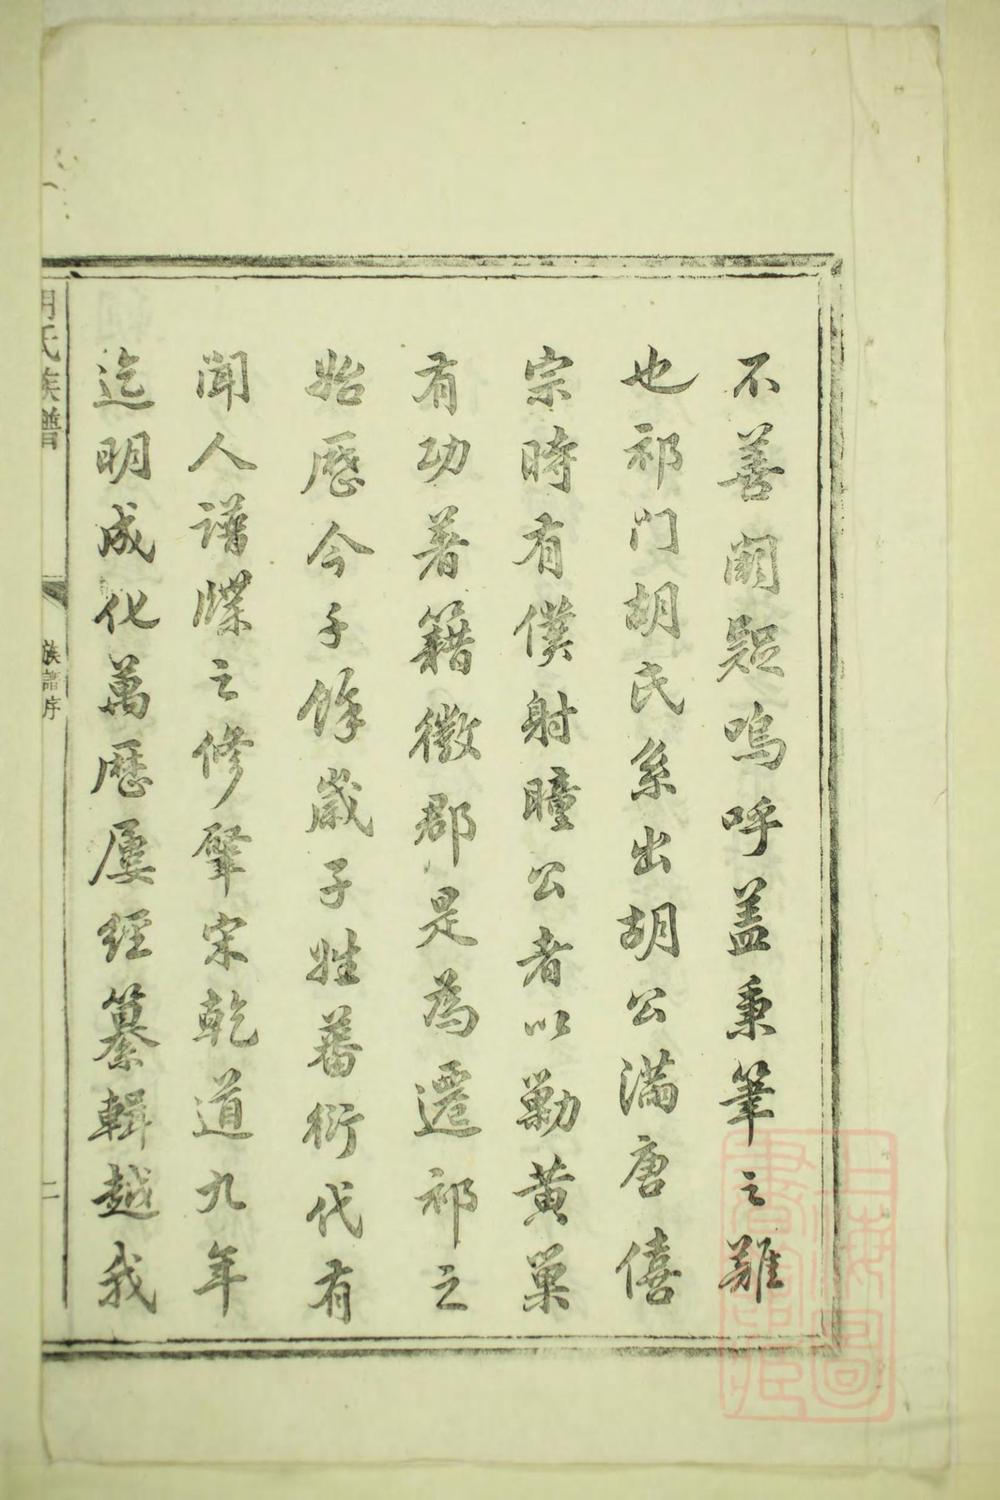 不善闕疑嗚呼盖秉筆之難
也祁门胡氏系出胡公满唐僖
宗時有僕射瞳公者以勦黄巢
有功著籍徽郡是為遷祁之
始歷今千餘歲子姓蕃衍代有
聞人譜牒之修肇宋乾道九年
迄明成化萬歷屢經纂輯越我
胡氏族譜
族譜序
二
上海图書館藏